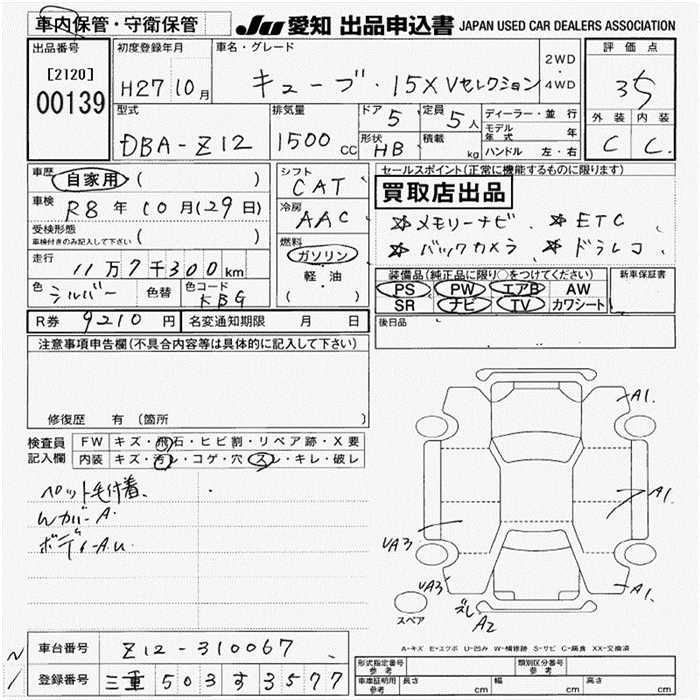 車内保管・守衛保管
JU 愛知 出品申込書 JAPAN USED CAR DEALERS ASSOCIATION
出品番号 初度登録年月 車名・グレード 評価点
[2120] 00139 H27 10月 キューブ・15X Vセレクション 2WD・4WD 3.5
型式 排気量 ドア 5 定員 5人 ディーラー・並行 外装 内装
DBA-Z12 1500 CC 形状 HB 積載 kg モデル年式 年 C C
ハンドル 左・右
車歴 自家用 ( ) シフト CAT セールスポイント(正常に機能するものに限ります)
車検 R8年 10月(29日) 冷房 AAC 買取店出品
受検形態 車検付きのみ記入して下さい ( ) ☆メモリーナビ ☆ETC
燃料 ガソリン 軽・油 ( ) ☆バックカメラ ☆ドラレコ
走行 11万7千300km 装備品(純正品に限り○をつけてください) 新車保証書
色 シルバー 色替 色コード KBG PS PW エアB AW
SR ナビ TV カワシート
R券 9210円 名変通知期限 月 日 後日品
注意事項申告欄(不具合内容等は具体的に記入して下さい)
修復歴 有 (箇所
検査員記入欄 FW キズ・飛石・ヒビ割・リペア跡・X要
内装 キズ・汚レ・コゲ・穴・スレ・キレ・破レ
ペット毛付着、
Wカバー A.
ボディ-A.U
A1.
A1.
UA3
UA3
A1.
スペア
ズレ A2
A-キズ E-エクボ U-凹み W-補修跡 S-サビ C-腐食 XX-交換済
車台番号 Z12-310067
登録番号 三重 503 す 3577
形式指定番号 参考 類別区分番号 参考
車庫証明用 参考 長さ cm 幅 cm 高さ cm